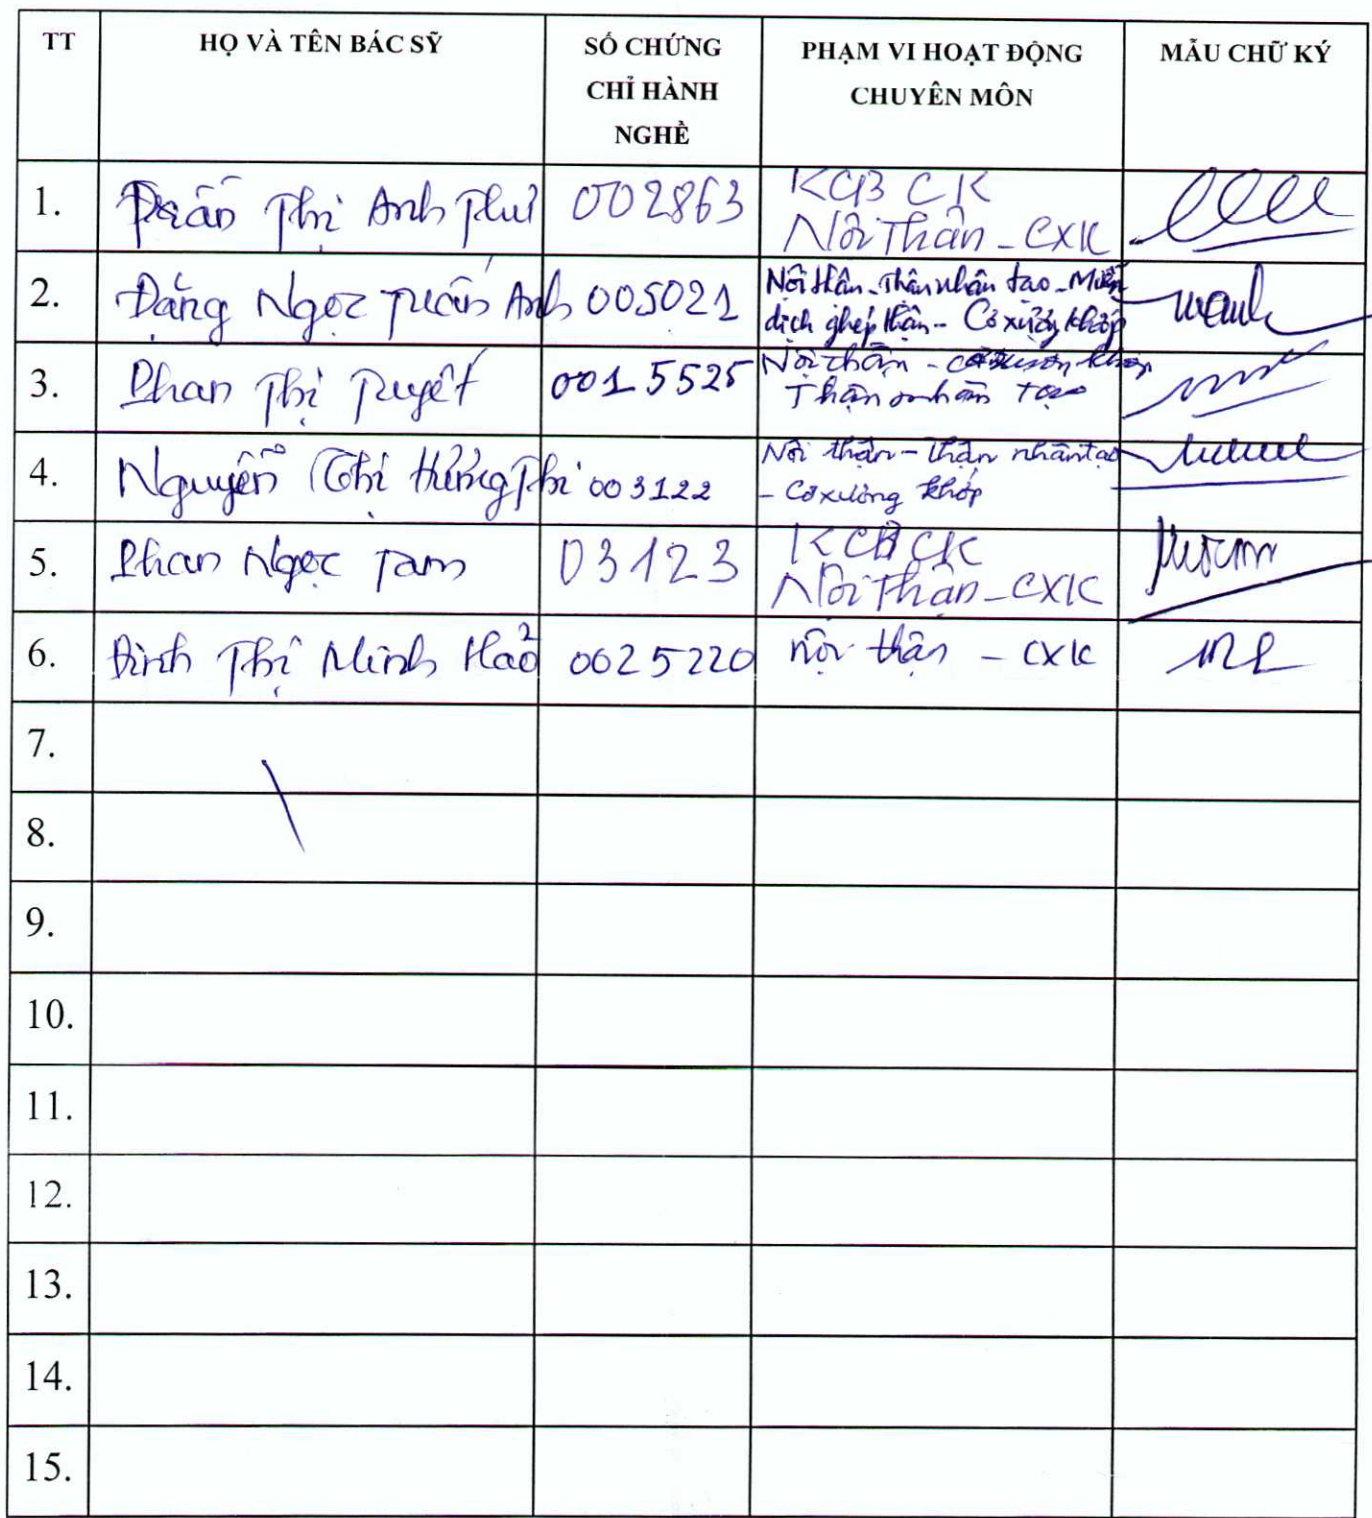 TT HỌ VÀ TÊN BÁC SỸ SỐ CHỨNG CHỈ HÀNH NGHỀ PHẠM VI HOẠT ĐỘNG CHUYÊN MÔN MẪU CHỮ KÝ
1. Trần Thị Anh Thư 002863 KCB CK
Nội Thận - CXK
2. Đặng Ngọc Tuấn Anh 005021 Nội thận - Thận nhân tạo - Miễn
dịch ghép thận - Cơ xương khớp
3. Phan Thị Tuyết 0015525 Nội thận - cơ xương khớp
Thận nhân tạo
4. Nguyễn Thị Hương Thi 003122 Nội thận - thận nhân tạo
- Cơ xương khớp
5. Phan Ngọc Tam 03123 KCB CK
Nội Thận - CXK
6. Đinh Thị Minh Hảo 0025220 nội thận - CXK
7.
8.
9.
10.
11.
12.
13.
14.
15.